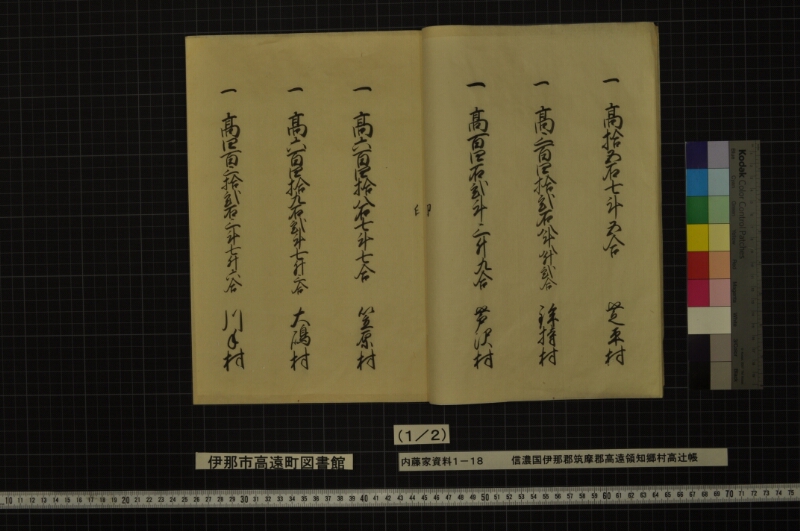 一 高拾五石七斗五合 芝平村
一 高三百四拾弐石八斗弐合 村
一 高百四石弐斗三升九合 芦沢村
一 高六百四拾八石七斗七合 笠原村
一 高六百四拾九石弐斗七升六合 大嶋村
一 高四百三拾弐石二斗七升六合 川手村
(1/2)
伊那市高遠町図書館
内藤家資料1-18 信濃国伊那郡筑摩郡高遠領知郷村高辻帳
Kodak